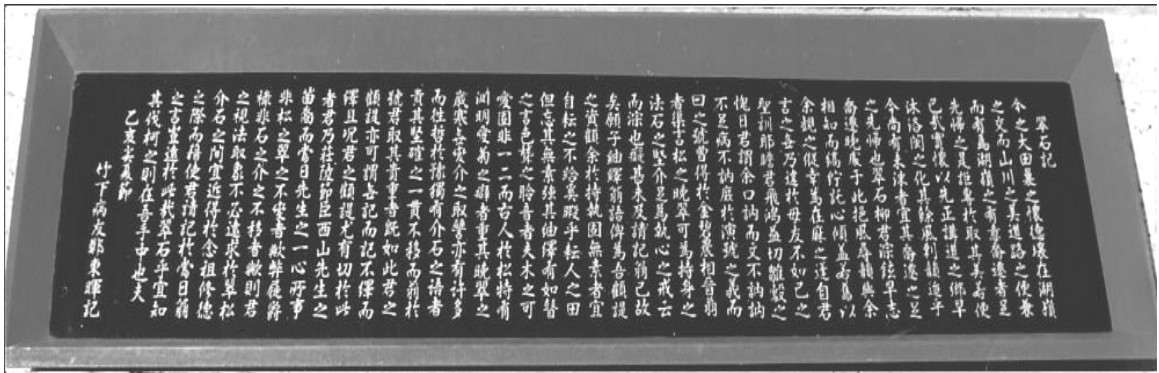 翠石記
今之大田襄之懷德壞在湖嶺
之交而山川之美道路之便兼
而有焉湖嶺之有意喬遷者足
先歸之是 於取其美若便
已哉實懷以先正講道之鄉早
沐洛閩之化其餘風利韻迨乎
今尚有未沫者宜其喬遷之足
之先歸也翠石柳君淙鉉早志
喬遷晚度于此挹風尋韻與余
相知而縞紵託心傾蓋 以
余親之 焉在麻之蓬自君
言之無乃遽於毋友不如己之
聖訓耶瞻君飛鴻益切雌
愧日君謂余 訥而又不訥訥
不足病不訥 於演號之義而
曰之號曹得於金 相吾翁
者 乎古松之晚翠可爲持身之
法石之堅介足爲執心之戒云
而淙也 甚未及請記 已故
矣願子紬繹翁語俾爲吾顧諟
之資顧余於持執固無素者宜
自耘之不給奚暇乎耘人之田
但忘其無素 其紬繹有如瞽
之言色聾之 音者夫木之可
愛固非一二而古人於松特有
淵明愛菊之癖者重其晚翠之
歲寒也愛介之取譬亦有許多
而往哲於豫獨有介石之語者
貴其堅確之一貫不移而翁於
號君取其貴重者旣如此君之
顧諟亦可謂無記而記不繹而
繹且況君之顧諟尤有切於此
者君乃莊陵節臣西山先生之
苗裔而當日先生之一心所事
非松之翠之不變者歟 蘿
非石之介之不移者歟則君
之視法取象不必遠求於翠松
介石之間宜近得於念祖修德
之際而積使君請記於當日翁
之言豈遠於此哉翠石乎宜知
其伐柯之則在吾手中也夫
乙亥 夏節
竹下病友鄭東暉記